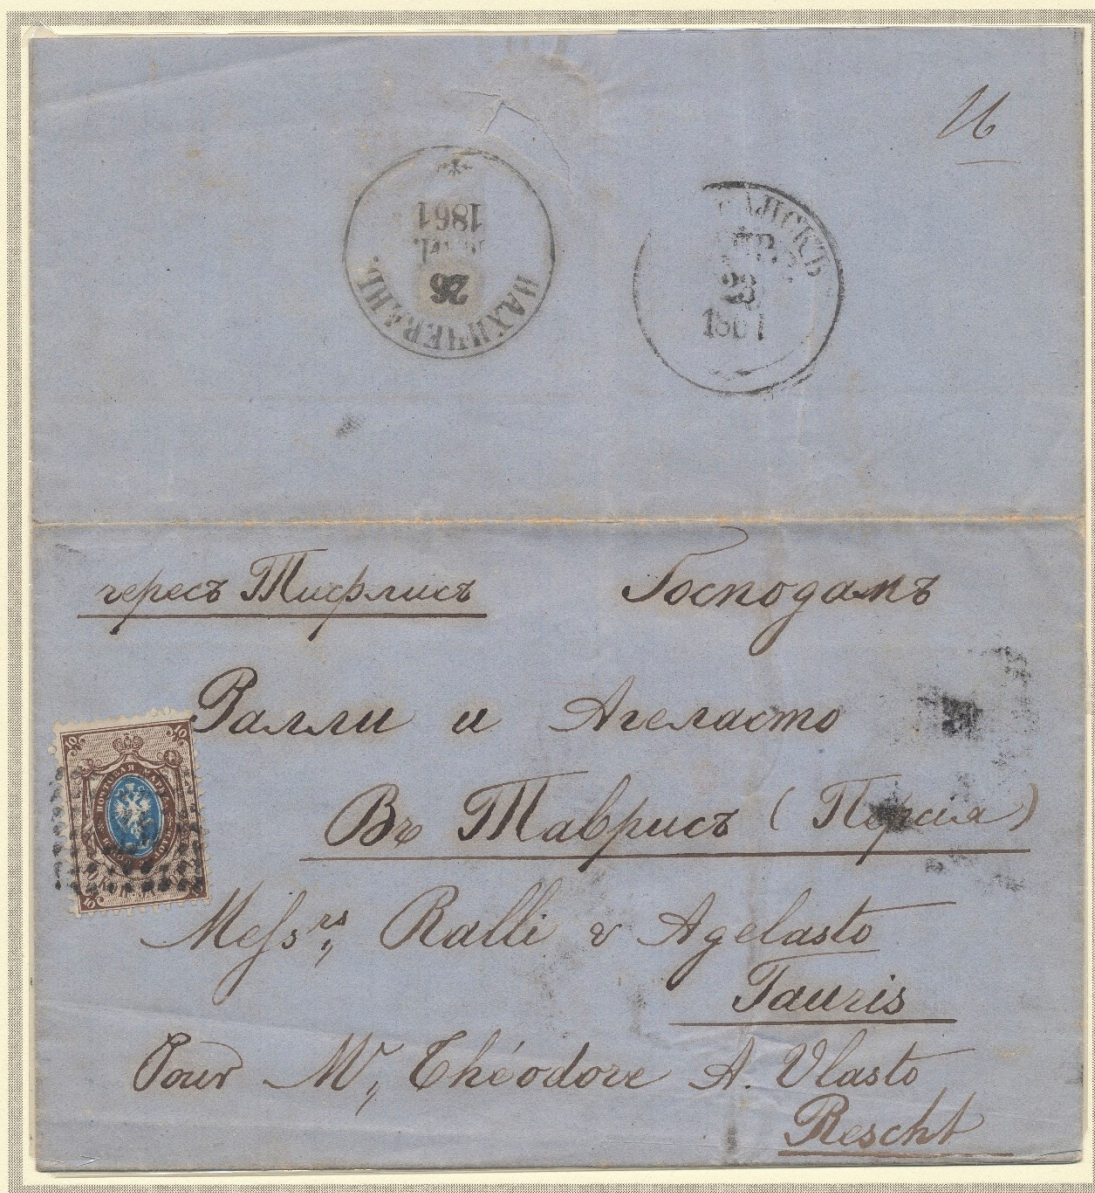 16
НАХИЧЕВАНЬ.
26
1861
23
чересъ Тифлисъ
Господамъ
Ралли и Агеласто
Въ Таврисъ (Персія)
Messrs, Ralli & Agelasto
Tauris
Pour Mr, Théodore A. Vlasto
Rescht
10 10
ПОЧТОВАЯ МАРКА
10 10